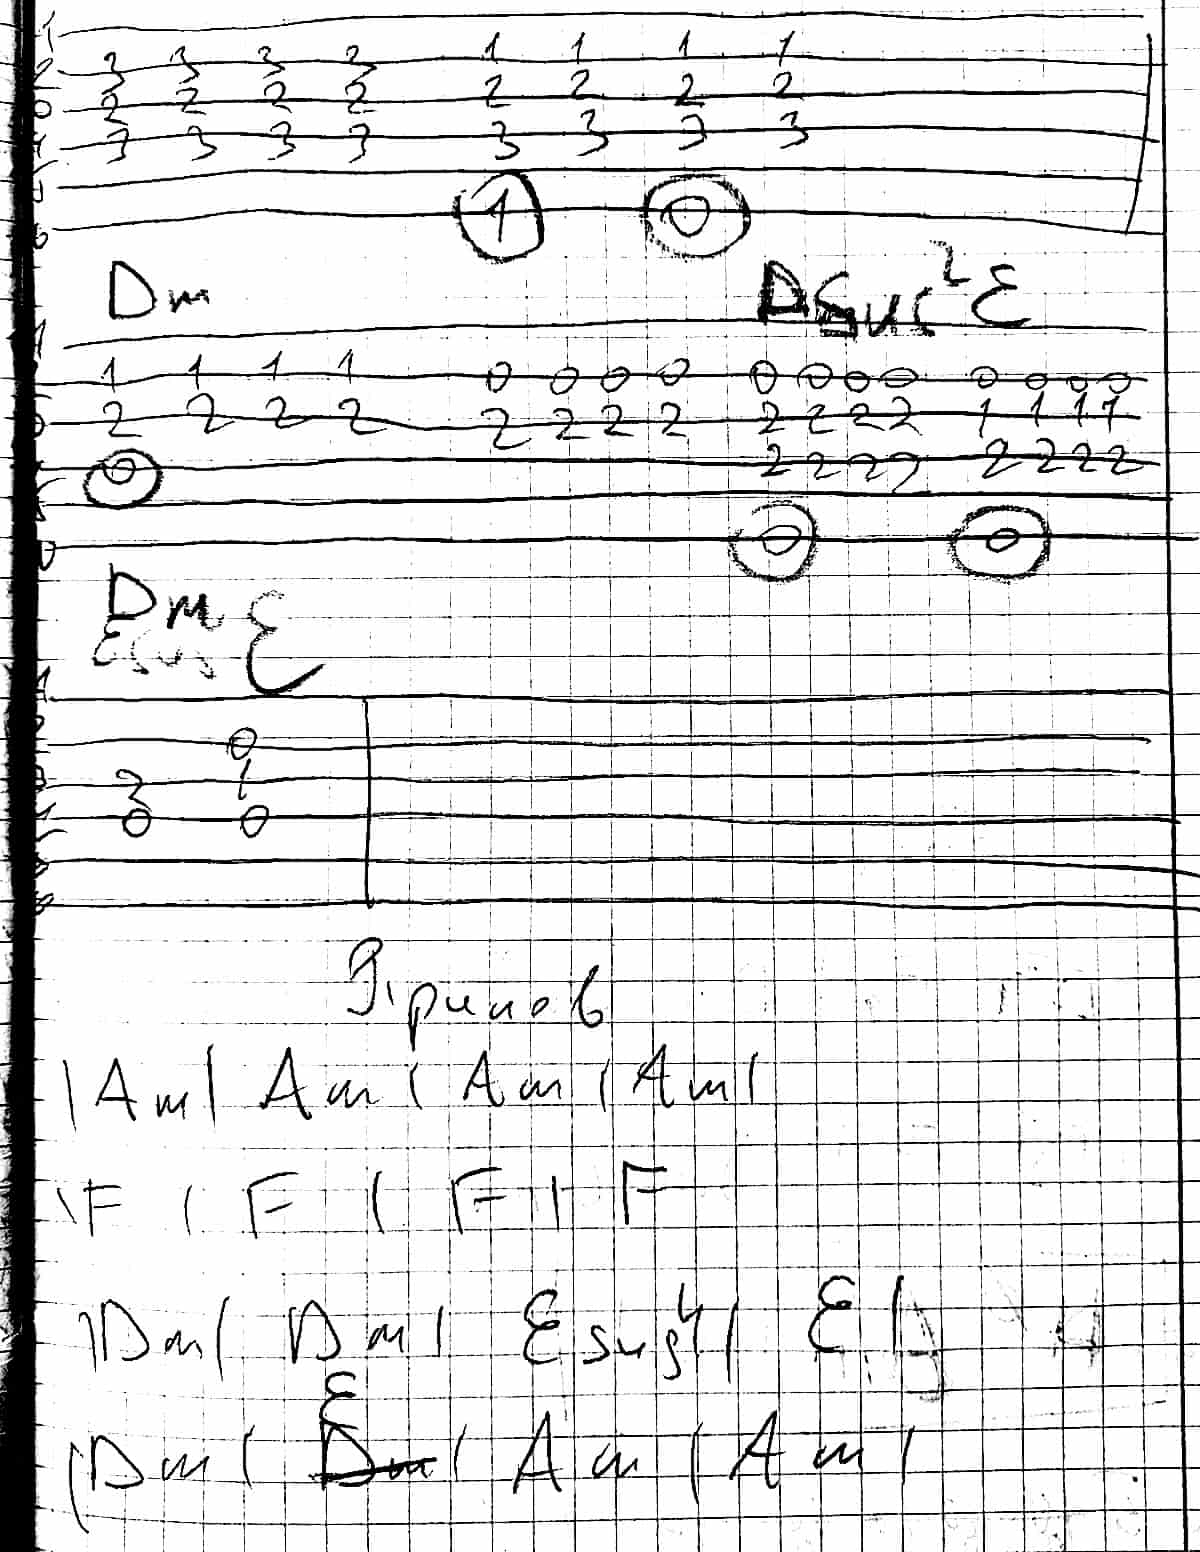 3 3 3 3 1 1 1 1
2 2 2 2 2 2 2 2
3 3 3 3 3 3 3 3
1 0
Dm Asus2 E
1 1 1 1 0 0 0 0 0 0 0 0 0 0 0 0
2 2 2 2 2 2 2 2 2 2 2 2 1 1 1 1
0 2 2 2 2 2 2 2 2
0 0
Dm
Esus E
0
2 1
0 0
|Am| Am | Am | Am |
|F | F | F | F
|Dm| Dm | Esus4 | E |
E
|Dm | Dm | Am | Am |